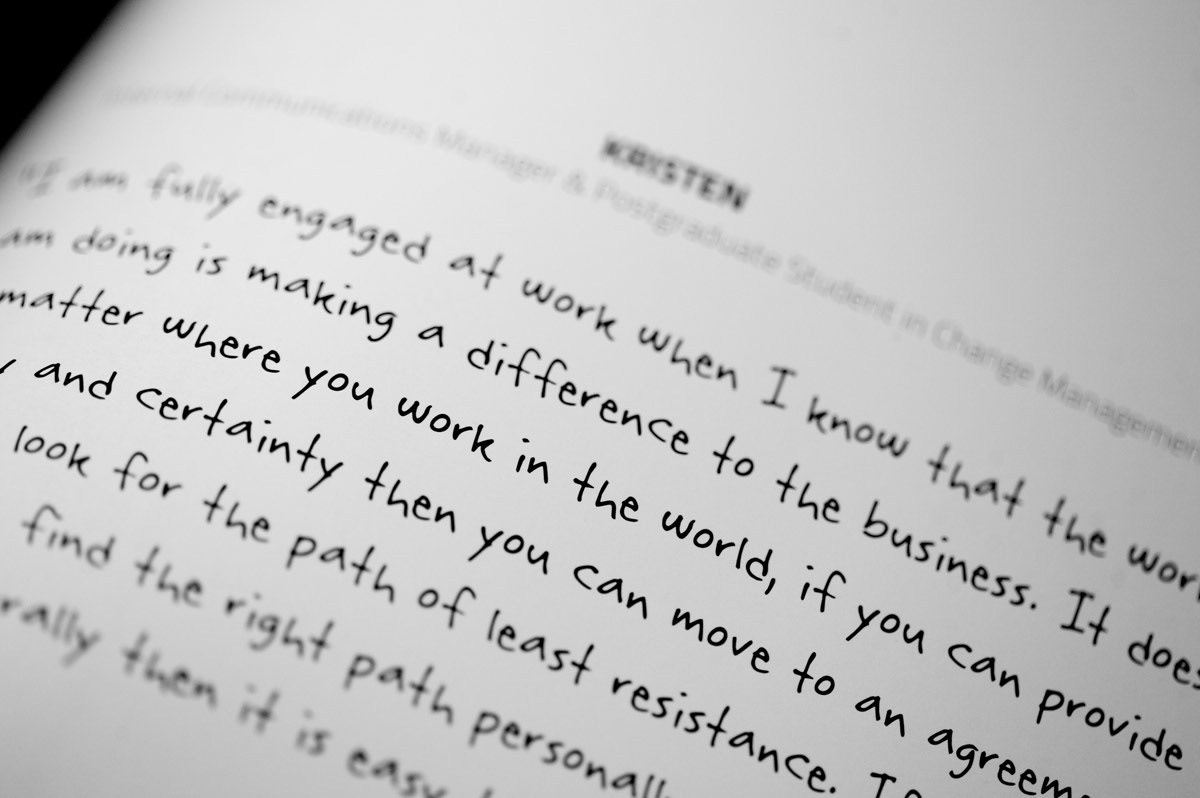 KRISTEN
Communications Manager & Postgraduate Student in Change Management
am fully engaged at work when I know that the wor
am doing is making a difference to the business. It does
matter where you work in the world, if you can provide
y and certainty then you can move to an agreeme
look for the path of least resistance. If
find the right path personall
rally then it is easy